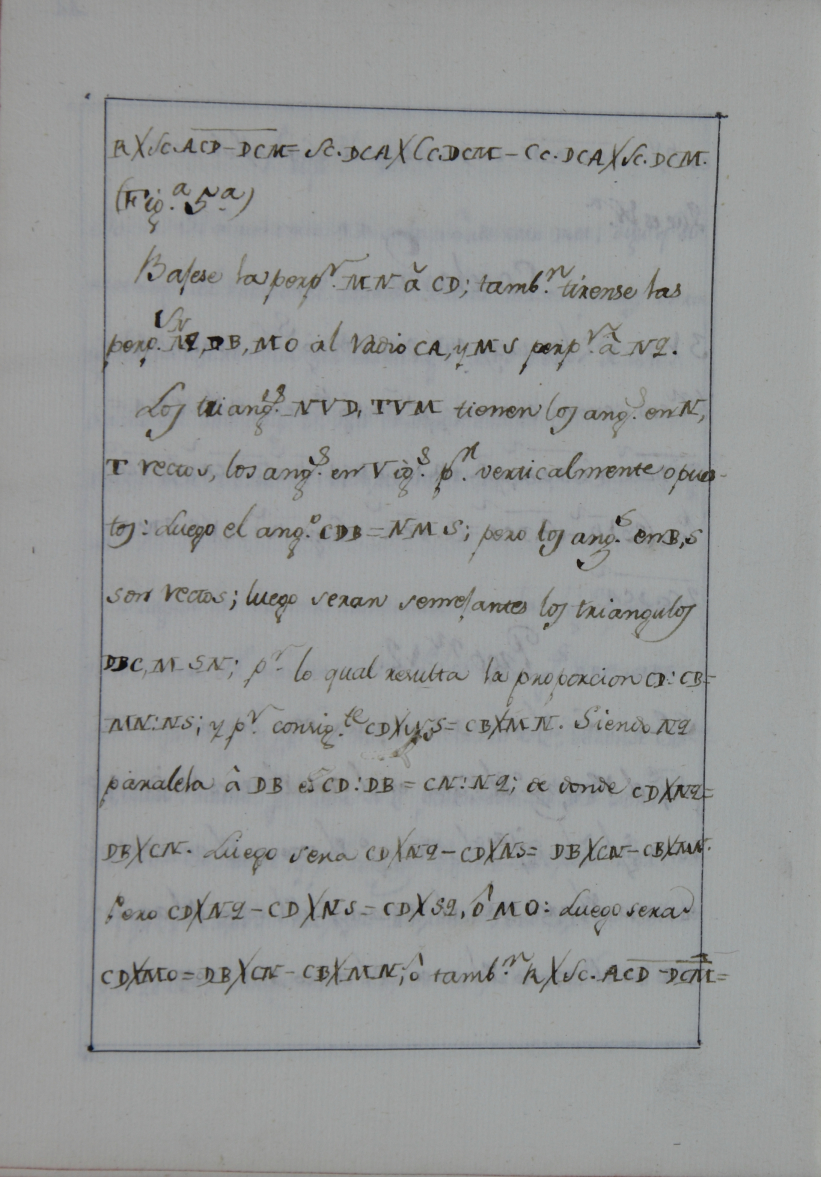 R X Sc. ACD – DCM = Sc. DCA X Cc. DCM – Cc. DCA X Sc. DCM.
(Fig.ª 5.ª)
Bajese la perp.r MN à CD; tamb.n tirense las
perp.s NQ, DB, MO al radio CA, y MS perp.r à NQ.
Los triang.s NVD, TVM tienen los ang.s en N,
T rectos, los ang.s en V ig.s p.r verticalmente opues-
tos: Luego el ang.o CDB = NMS; pero los ang.s en B, S
son rectos; luego seran semejantes los triangulos
DBC, MSN; p.r lo qual resulta la proporcion CD : CB =
MN : NS; y p.r consig.te CD X NS = CB X MN. Siendo NQ
paralela à DB es CD : DB = CN : NQ; de donde CD X NQ =
DB X CN. Luego sera CD X NQ – CD X NS = DB X CN – CB X MN.
Pero CD X NQ – CD X NS = CD X SQ, ô MO: Luego sera
CD X MO = DB X CN – CB X MN; ô tamb.n R X Sc. ACD – DCM =